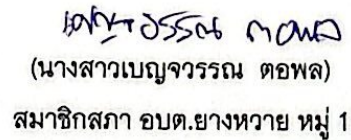 เบญจวรรณ ตอพล
(นางสาวเบญจวรรณ ตอพล)
สมาชิกสภา อบต.ยางหวาย หมู่ 1